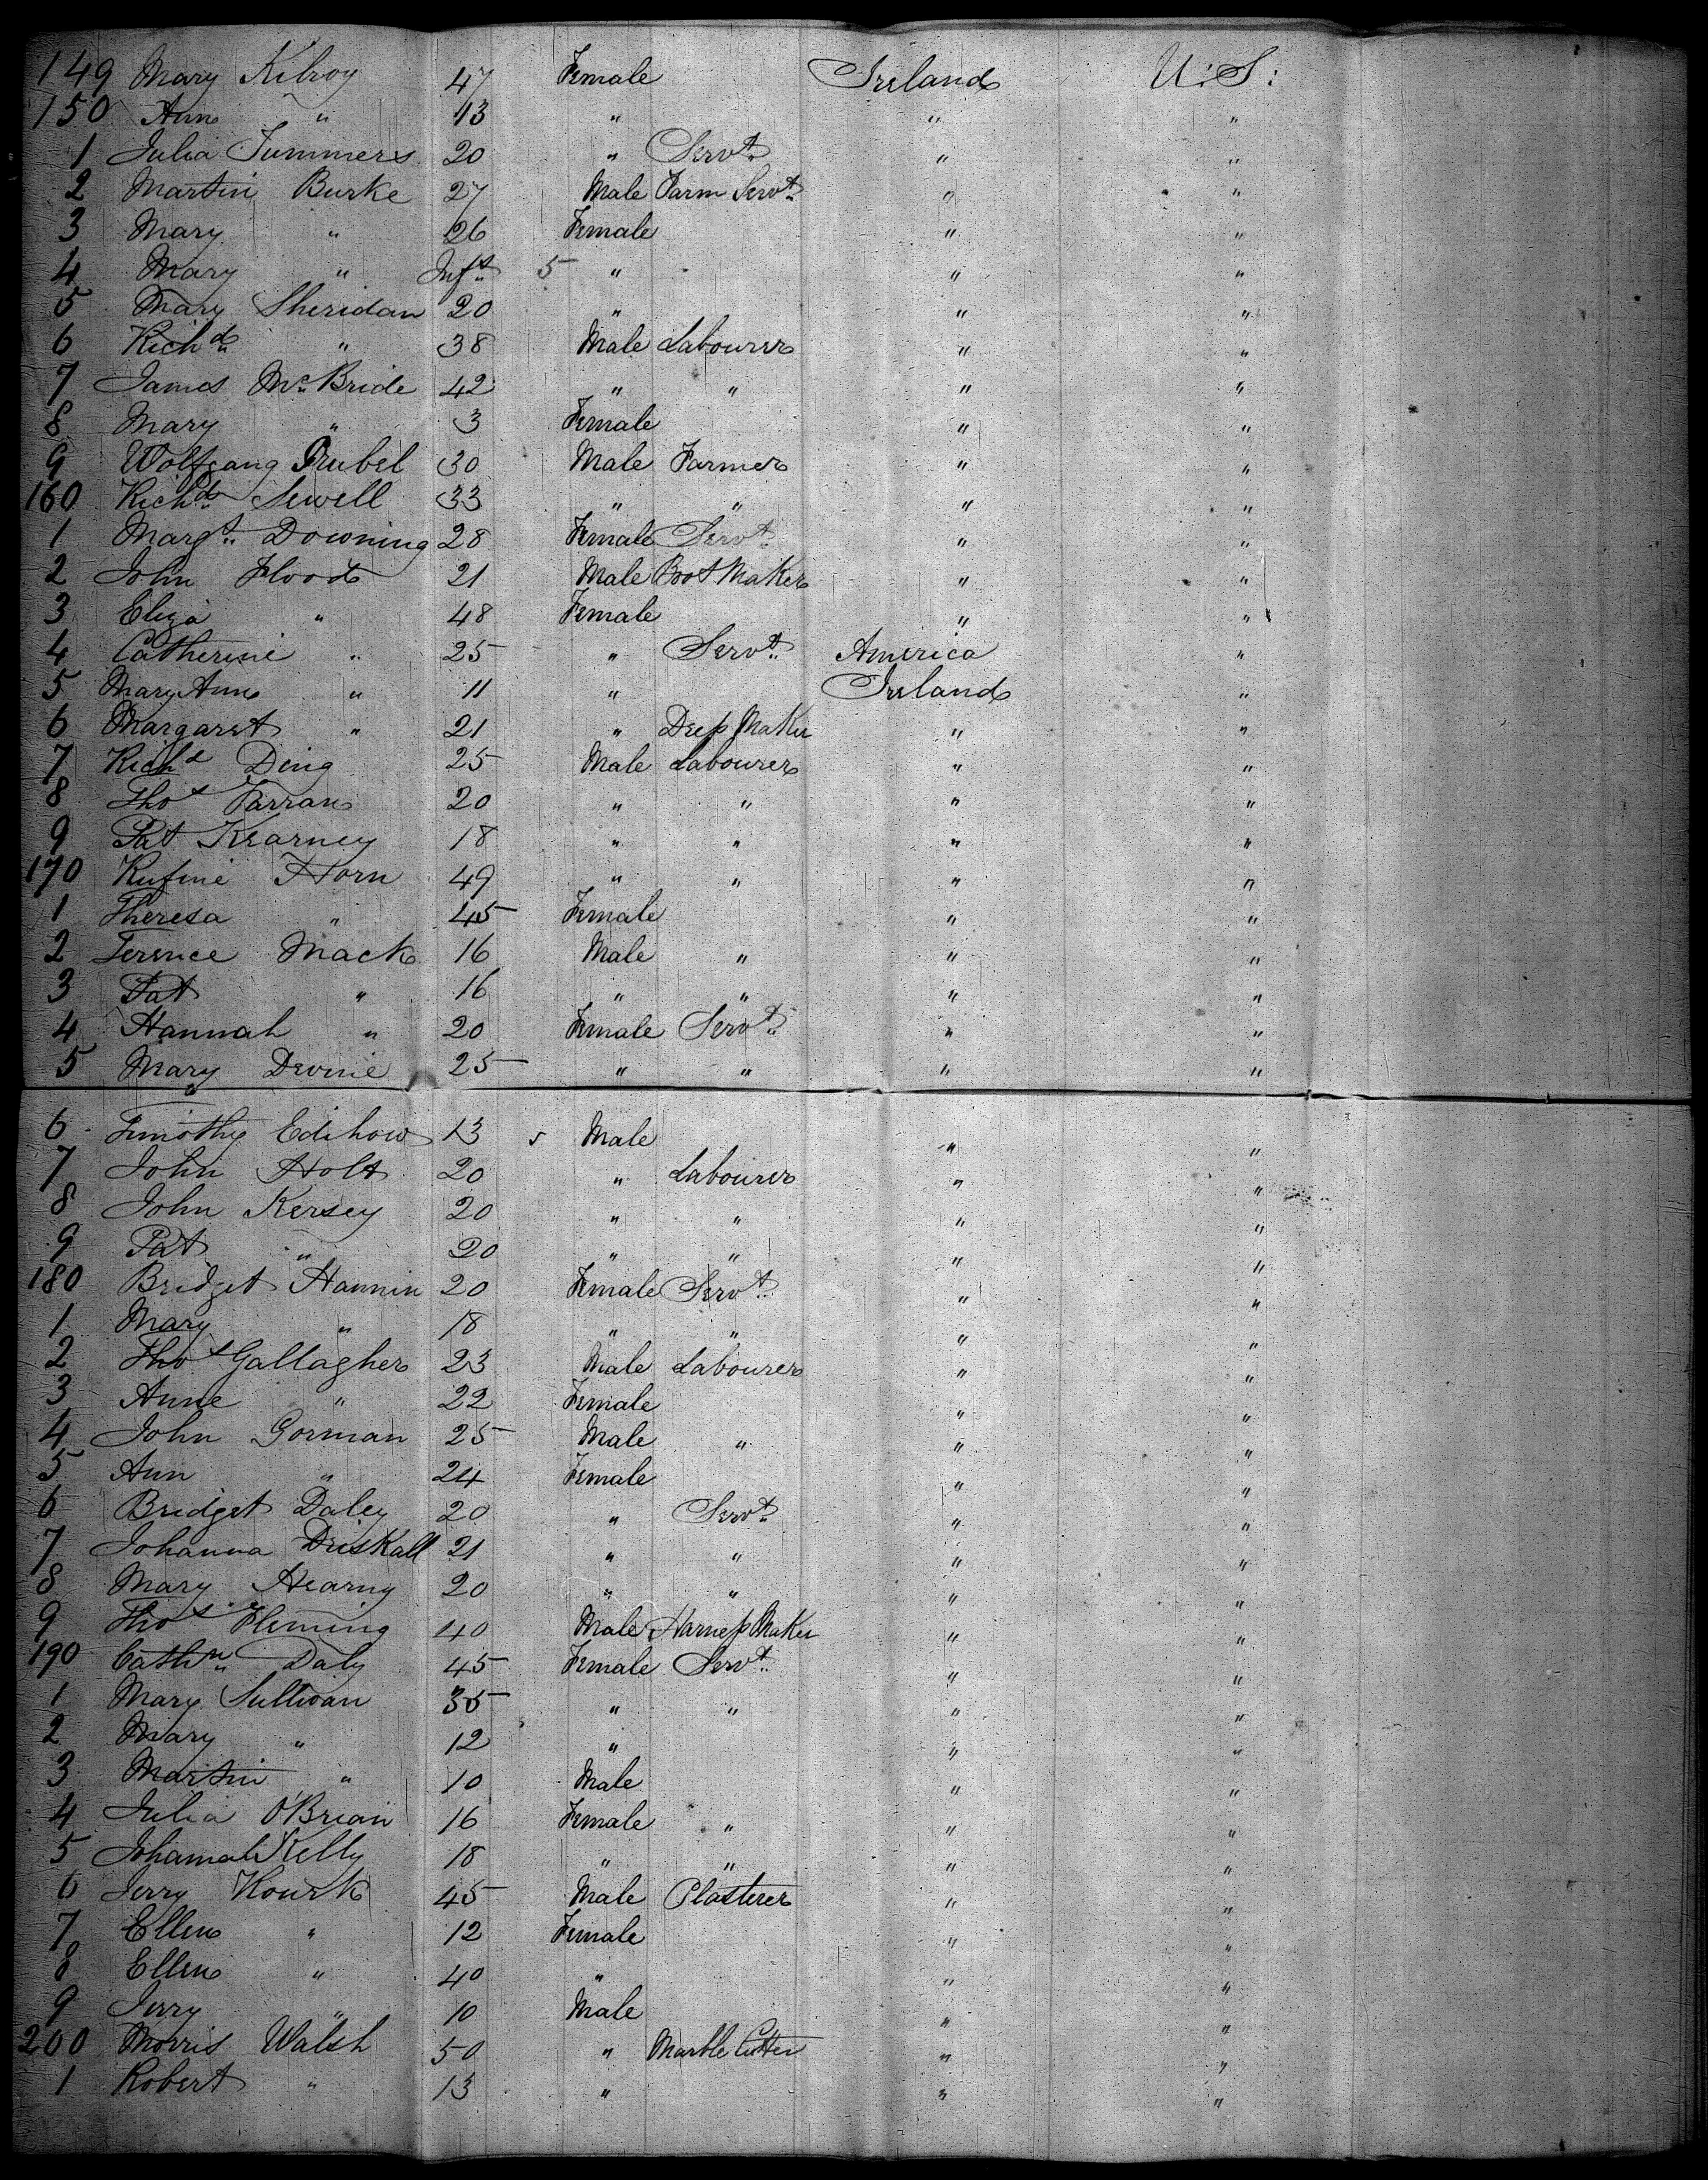 149 Mary Kilroy 47 Female Ireland U:S:
150 Ann " 13 " " "
1 Julia Summers 20 " Servt. " "
2 Martin Burke 27 Male Farm Servt. " "
3 Mary " 26 Female " "
4 Mary " Inft. 5 " " "
5 Mary Sheridan 20 " " "
6 Richd. " 38 Male Labourer " "
7 James McBride 42 " " " "
8 Mary " 3 Female " "
9 Wolfgang Rubel 30 Male Farmer " "
160 Richd. Sewell 33 " " " "
1 Margt. Downing 28 Female Servt. " "
2 John Flood 21 Male Boot Maker " "
3 Eliza " 48 Female " "
4 Catherine " 25 " Servt. America "
5 Mary Ann " 11 " Ireland "
6 Margaret " 21 " Dress Maker " "
7 Richd Ding 25 Male Labourer " "
8 Thos Farran 20 " " " "
9 Pat Kearney 18 " " " "
170 Rufine Horn 49 " " " "
1 Theresa " 45 Female " "
2 Terence Mack 16 Male " " "
3 Pat " 16 " " " "
4 Hannah " 20 Female Servt. " "
5 Mary Devine 25 " " " "
6 Timothy Edihow 13 Male " "
7 John Holt 20 " Labourer " "
8 John Kersey 20 " " " "
9 Pat " 20 " " " "
180 Bridget Hannin 20 Female Servt. " "
1 Mary " 18 " " " "
2 Thos Gallagher 23 Male Labourer " "
3 Anne " 22 Female " "
4 John Gorman 25 Male " " "
5 Ann " 24 Female " "
6 Bridget Daley 20 " Servt. " "
7 Johanna Driskall 21 " " " "
8 Mary Hearny 20 " " " "
9 Thos Fleming 40 Male Harness Maker " "
190 Cathn. Daly 45 Female Servt. " "
1 Mary Sullivan 35 " " " "
2 Mary " 12 " " "
3 Martin " 10 Male " "
4 Julia O'Brian 16 Female " " "
5 Johamah Kelly 18 " " " "
6 Jerry Rourk 45 Male Plasterer " "
7 Ellen " 12 Female " "
8 Ellen " 40 " " "
9 Jerry " 10 Male " "
200 Morris Walsh 50 " Marble Cutter " "
1 Robert " 13 " " "